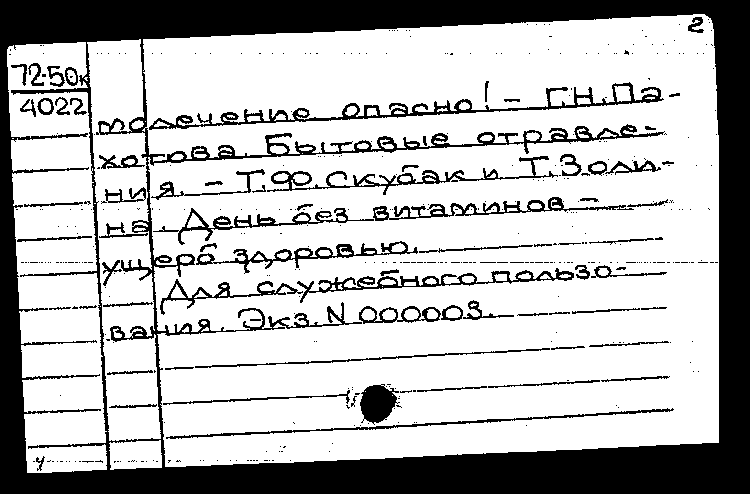 2
72-50к
4022
молечение опасно! – Г.Н.Па-
хотова. Бытовые отравле-
ния. – Т.Ф.Скубак и Т.Золи-
на. День без витаминов –
ущерб здоровью.
Для служебного пользо-
вания. Экз. N 000003.
ч